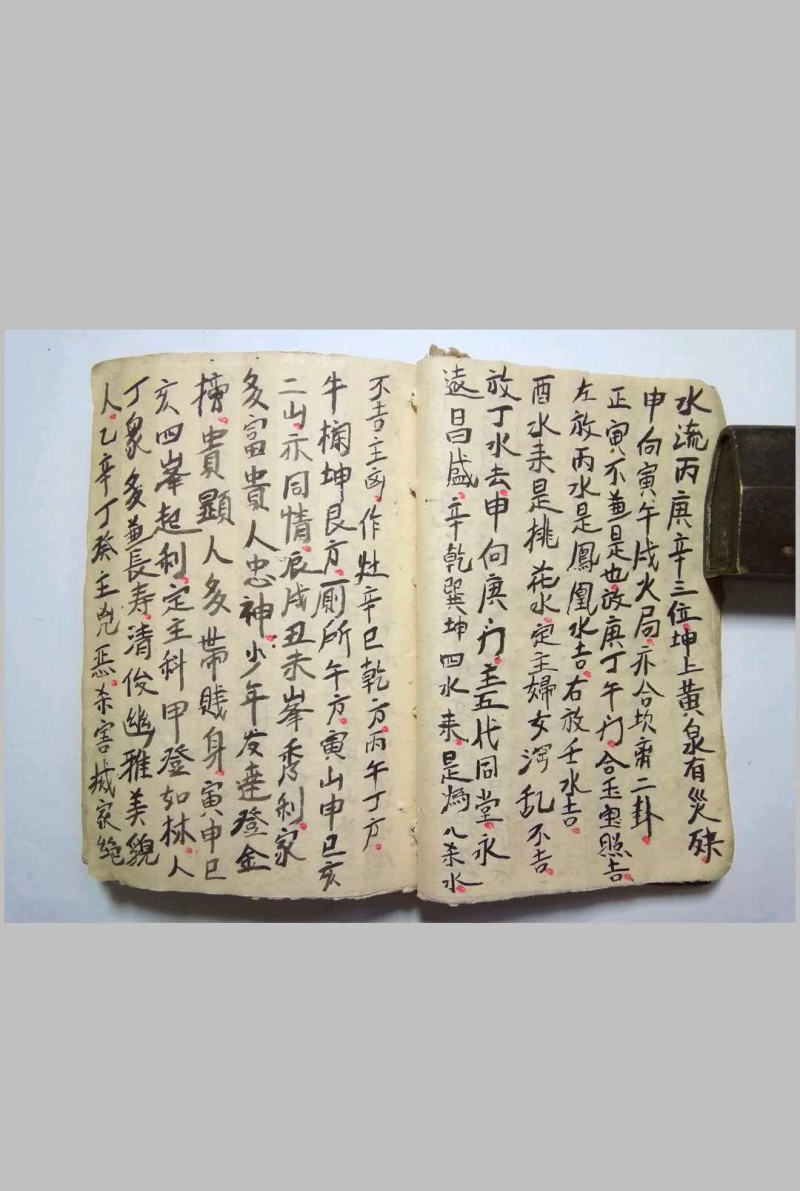 水流丙庚辛三位.坤上黄泉有災殃.
申向寅午戌火局.亦合坎离二卦.
正寅不兼是也.放庚丁午门.合玉宝照吉.
左放丙水是鳳凰水吉.右放壬水吉.
酉水来是桃花水.定主婦女淫乱不吉.
放丁水去申向庚门.主五代同堂.永
遠昌盛.辛乾巽坤四水来.是為八杀水.
不吉主凶.作灶辛巳乾方.丙午丁方.
牛栏坤艮方.厕所午方.寅山申巳亥
二山.亦同情.辰戌丑未峯秀利.家
多富貴人忠神.少年发達登金
榜.貴顯人多帶賤身.寅申巳
亥四峯起利.定主科甲登如林.人
丁泉多兼長寿.清俊幽雅美貌
人.乙辛丁癸主兇恶.杀害城家絶